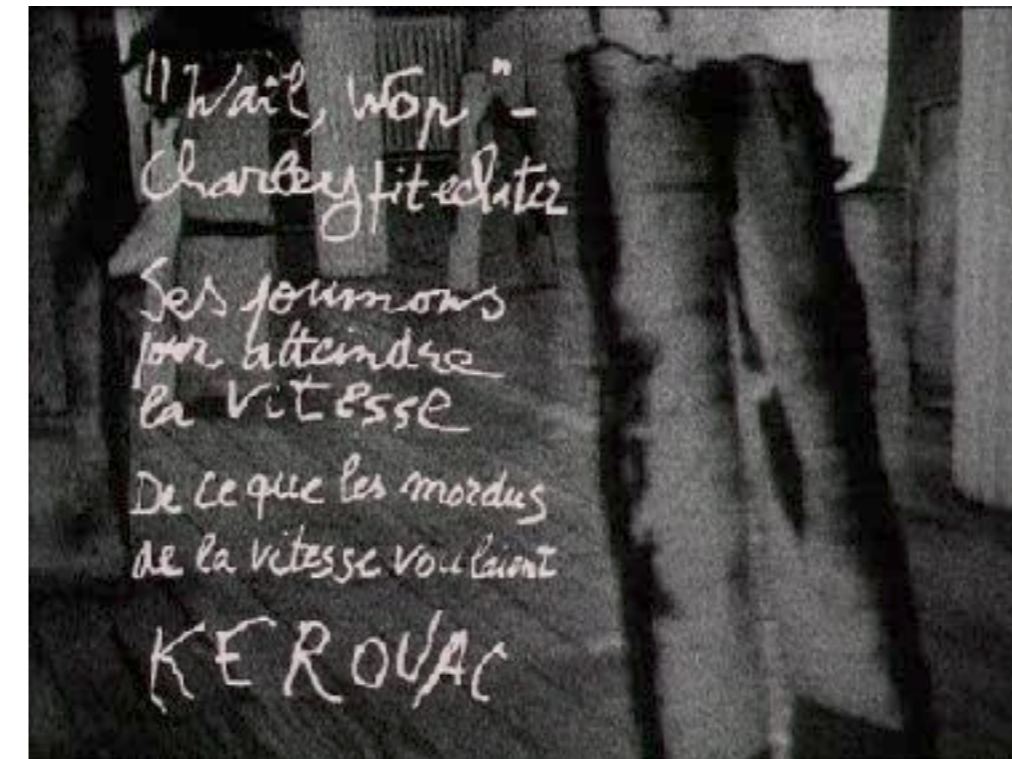 "Wail, Wop" -
Charley fit eclater
Ses poumons
pour atteindre
la vitesse
De ce que les mordus
de la vitesse voulaient
KEROUAC